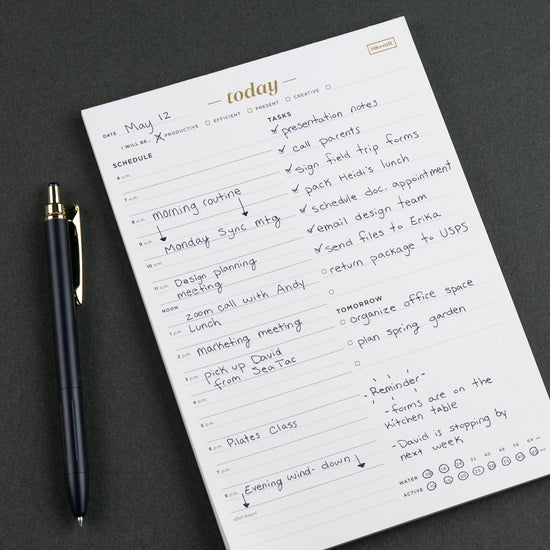 ink+volt
today
DATE May 12
I WILL BE... X PRODUCTIVE EFFICIENT PRESENT CREATIVE
SCHEDULE
6 a.m.
7 a.m.
8 a.m. morning routine
9 a.m. Monday Sync mtg
10 a.m.
11 a.m. Design planning
meeting
NOON zoom call with Andy
1 p.m. Lunch
2 p.m. marketing meeting
3 p.m. pick up David
from SeaTac
4 p.m.
5 p.m.
6 p.m. Pilates Class
7 p.m.
8 p.m. Evening wind-down
after hours
TASKS
presentation notes
call parents
sign field trip forms
pack Heidi's lunch
schedule doc. appointment
email design team
send files to Erika
return package to USPS
TOMORROW
organize office space
plan spring garden
-Reminder-
-forms are on the
kitchen table
-David is stopping by
next week
WATER 08 16 24 32 40 48 56 64
ACTIVE